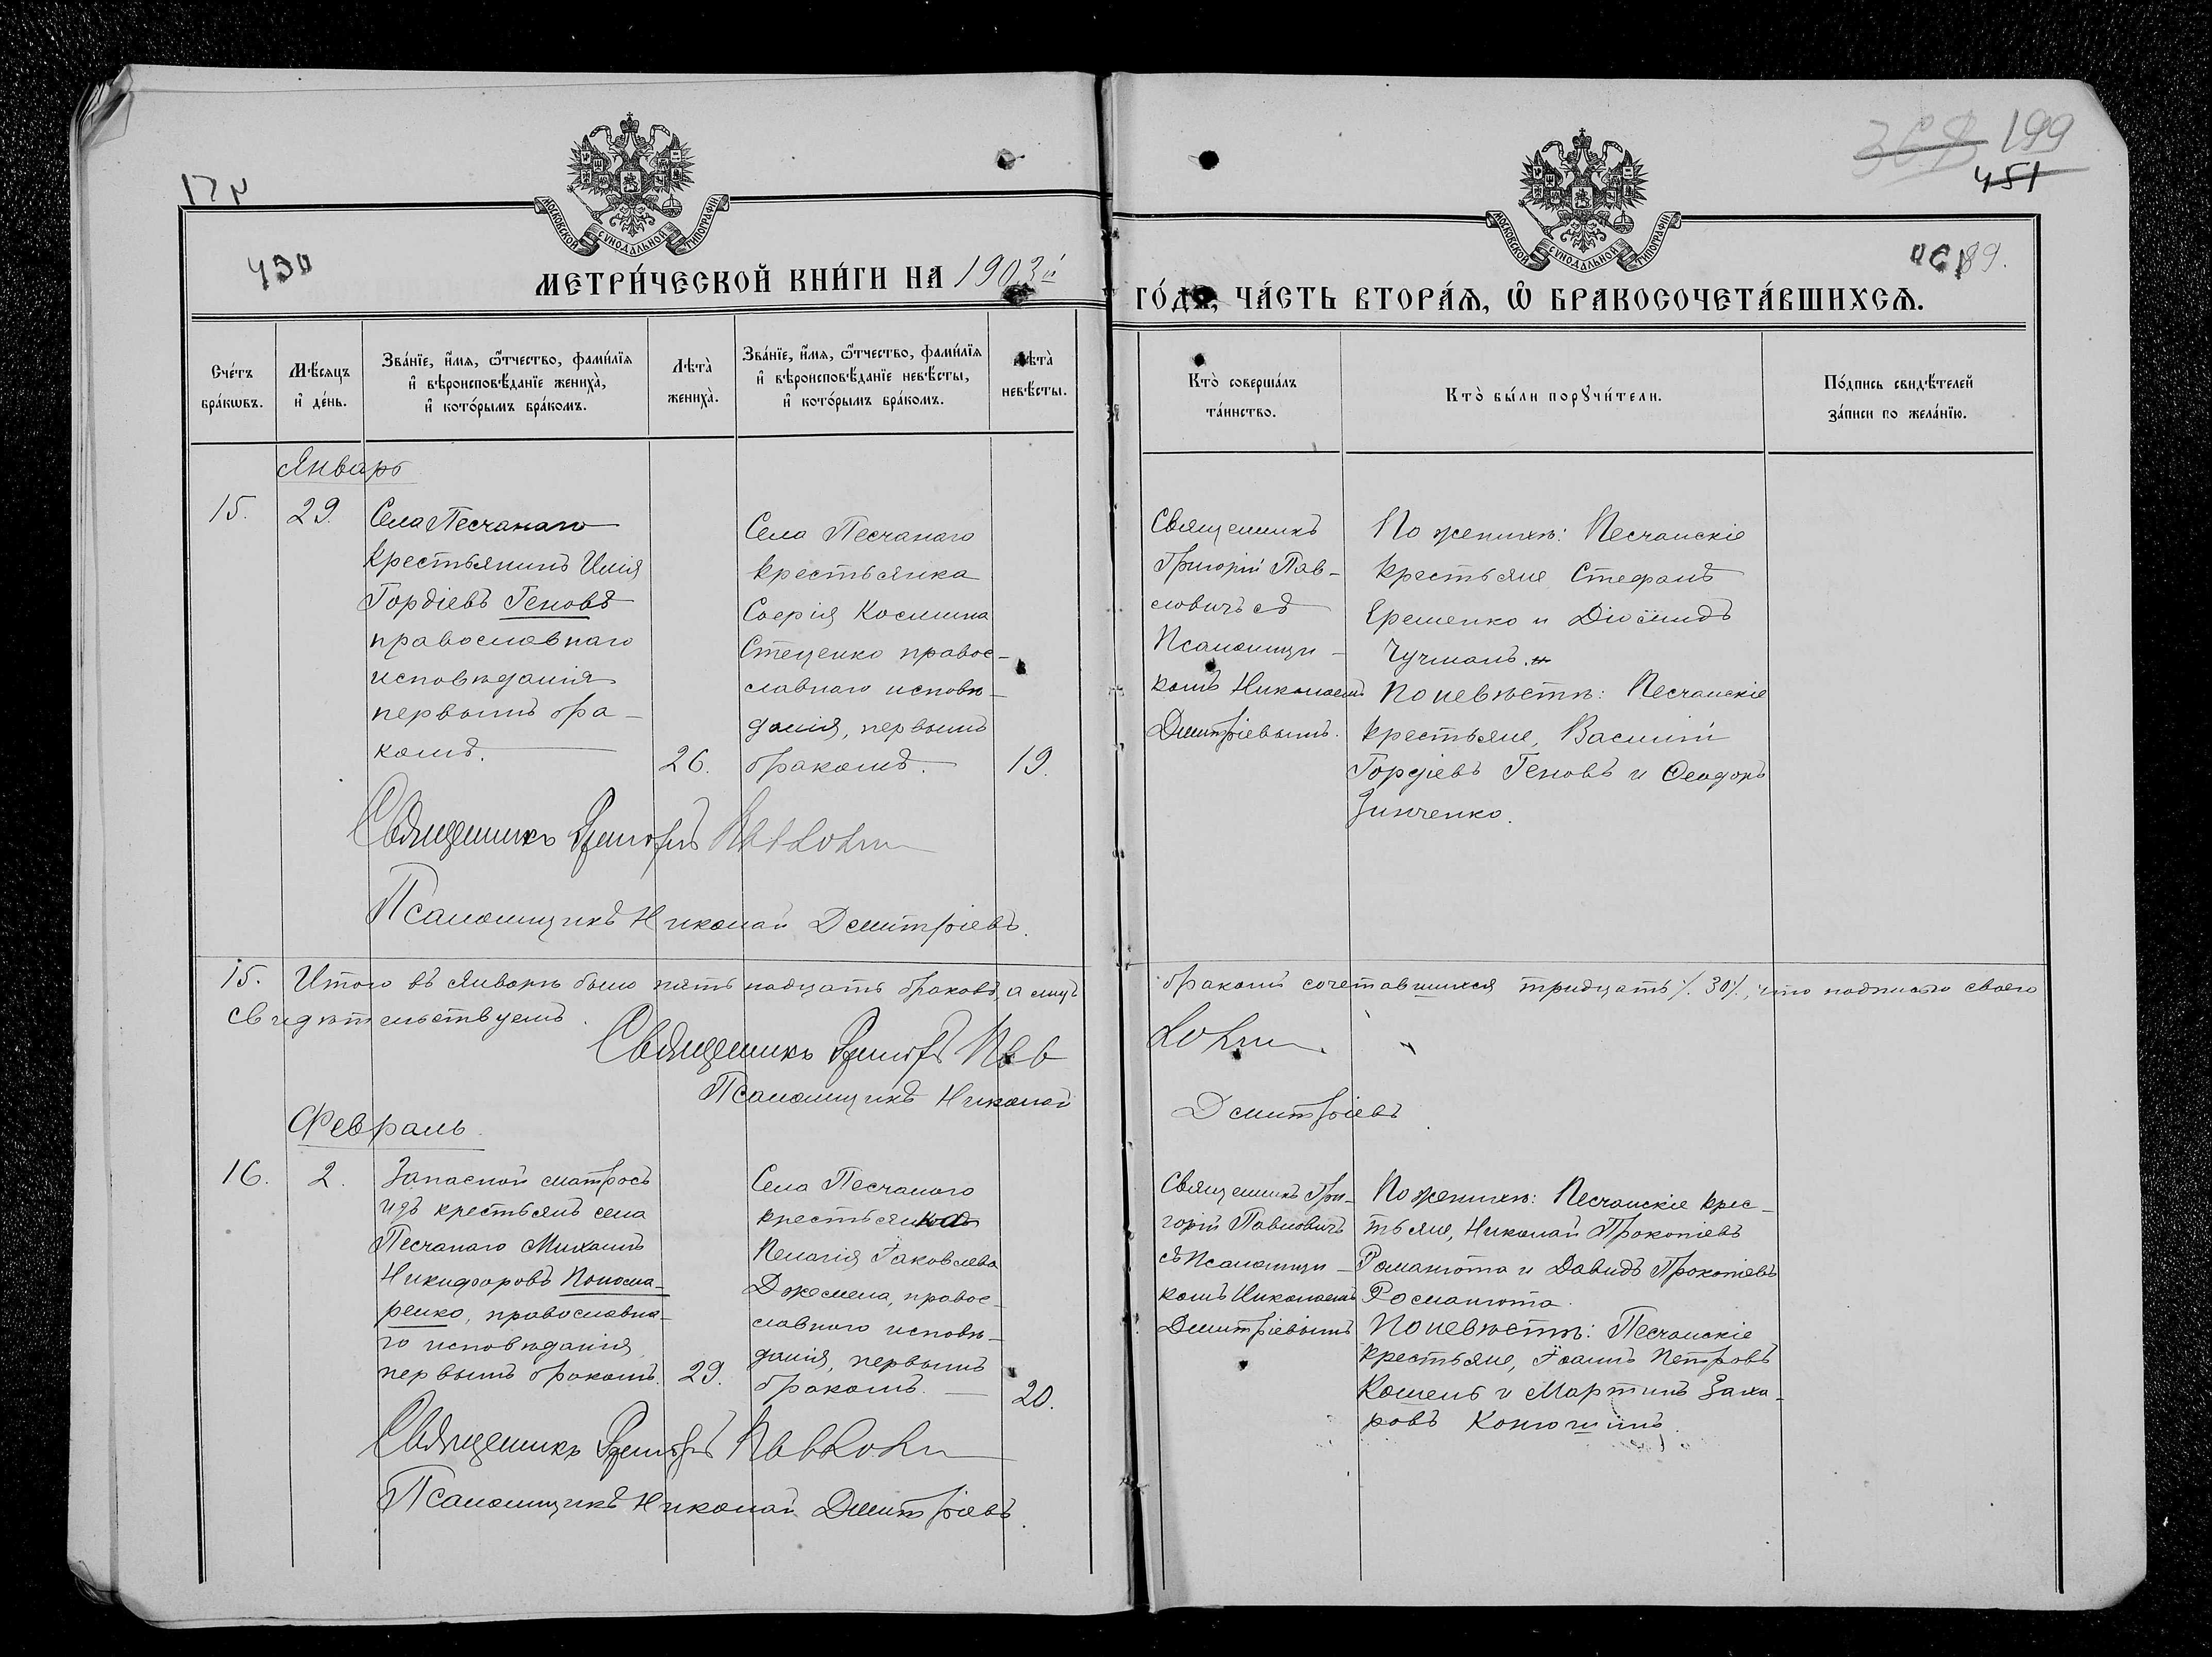 199
451
430
89.
МОСКОВСКОЙ СѴНОДАЛЬНОЙ ТИПОГРАФІИ
МОСКОВСКОЙ СѴНОДАЛЬНОЙ ТИПОГРАФІИ
МЕТРИ́ЧЕСКОЙ КНИ́ГИ НА 1903й
ГО́ДЪ, ЧА́СТЬ ВТОРА́Я, Ѡ БРАКОСОЧЕТА́ВШИХСЯ.
Сче́тъ бра́кωвъ.
Мѣ́сяцъ и҆ де́нь.
Зва́нїе, и҆́мя, ѻ҆́тчество, фами́лїя и҆ вѣроисповѣ́данїе жениха̀, и҆ кото́рымъ бра́комъ.
Лѣ́та жениха̀.
Зва́нїе, и҆́мя, ѻ҆́тчество, фами́лїя и҆ вѣроисповѣ́данїе невѣ́сты, и҆ кото́рымъ бра́комъ.
Лѣ́та невѣ́сты.
Кто̀ соверша́лъ та́инство.
Кто̀ бы́ли порꙋчи́тели.
По́дпись свидѣ́телей за́писи по жела́нїю.
Январь
15.
29.
Села Песчанаго
крестьянинъ Илія
Гордіевъ Геновъ
православнаго
исповѣданія
первымъ бра-
комъ.
26.
Села Песчанаго
крестьянка
Софія Космина
Стеценко правос-
лавнаго исповѣ-
данія, первымъ
бракомъ.
19.
Священникъ
Григорій Пав-
ловичъ съ
Псаломщи-
комъ Николаемъ
Дмитріевымъ.
По женихѣ: Песчанскіе
крестьяне Стефанъ
Ерешенко и Діомидъ
Чучманъ.
По невѣстѣ: Песчанскіе
крестьяне, Василій
Гордіевъ Геновъ и Ѳеодоръ
Зинченко.
Священникъ Григорій
Псаломщикъ Николай Дмитріевъ.
15. Итого въ Январѣ было пятьнадцать браковъ, а лицъ бракомъ сочетавшихся тридцать /.30/., что подписью своею
свидѣтельствуемъ.
Священникъ Григорій
Псаломщикъ Николай Дмитріевъ
Февраль.
16.
2.
Запасной матросъ
изъ крестьянъ села
Песчанаго Михаилъ
Никифоровъ Понома-
ренко, православна-
го исповѣданія
первымъ бракомъ.
29.
Села Песчанаго
крестьянка
Пелагія Іаковлева
Джемела, правос-
лавнаго исповѣ-
данія, первымъ
бракомъ.
20.
Священникъ Гри-
горій Павловичъ
съ Псаломщи-
комъ Николаемъ
Дмитріевымъ
По женихѣ: Песчанскіе крес-
тьяне, Николай Прокопіевъ
Романюта и Давидъ Прокопіевъ
Романюта.
По невѣстѣ: Песчанскіе
крестьяне, Іоаннъ Петровъ
Кошень и Мартинъ Заха-
ровъ
Священникъ Григорій
Псаломщикъ Николай Дмитріевъ.